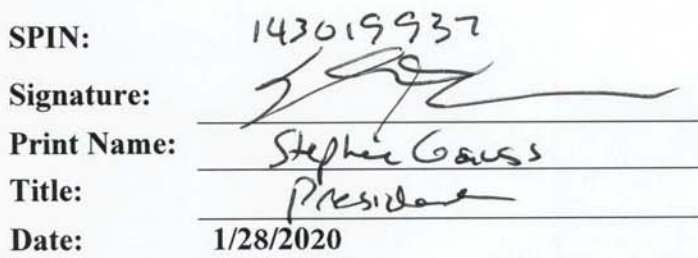 SPIN: 143019937
Signature:
Print Name: Stephen Gauss
Title: President
Date: 1/28/2020